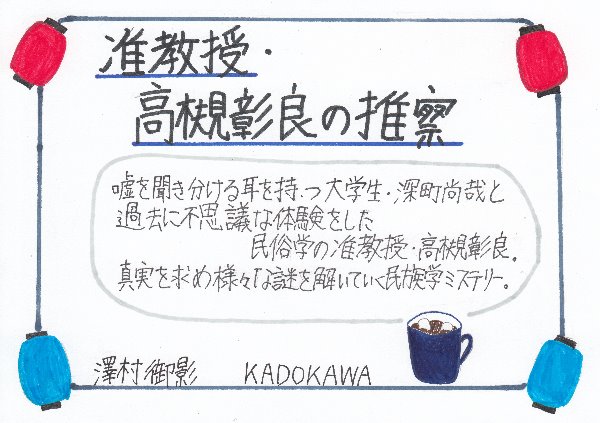 准教授・
高槻彰良の推察
嘘を聞き分ける耳を持つ大学生・深町尚哉と
過去に不思議な体験をした
民俗学の准教授・高槻彰良。
真実を求め様々な謎を解いていく民族学ミステリー。
澤村御影 KADOKAWA